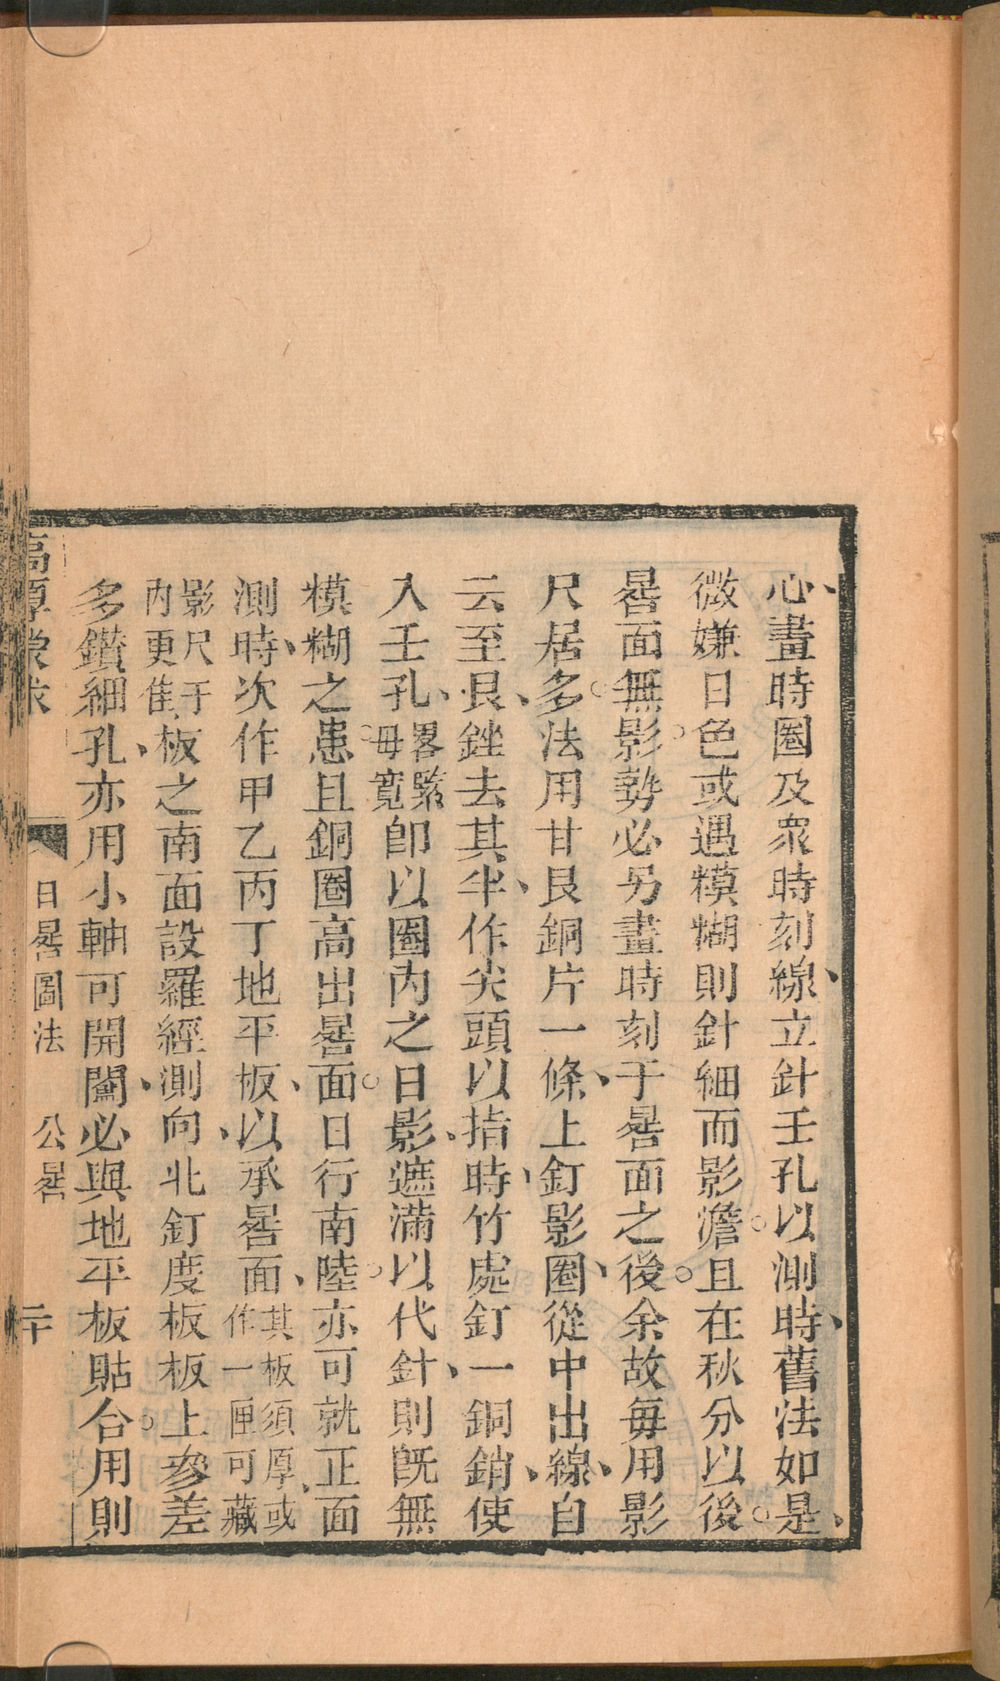 心畫時圈及衆時刻線立針壬孔以測時舊法如是
微嫌日色或遇糢糊則針細而影澹且在秋分以後
晷面無影勢必另畫時刻于晷面之後余故每用影
尺居多法用甘艮銅片一條上釘影圈從中出線自
云至艮銼去其半作尖頭以指時竹處釘一銅銷使
入壬孔畧緊毋寬卽以圈內之日影遮滿以代針則旣無
糢糊之患且銅圈高出晷面日行南陸亦可就正面
測時次作甲乙丙丁地平板以承晷面其板須厚或作一匣可藏
影尺于內更佳板之南面設羅經測向北釘度板板上參差
多鑚細孔亦用小軸可開闔必與地平板貼合用則
高厚蒙求 日晷圖法 公晷 二十